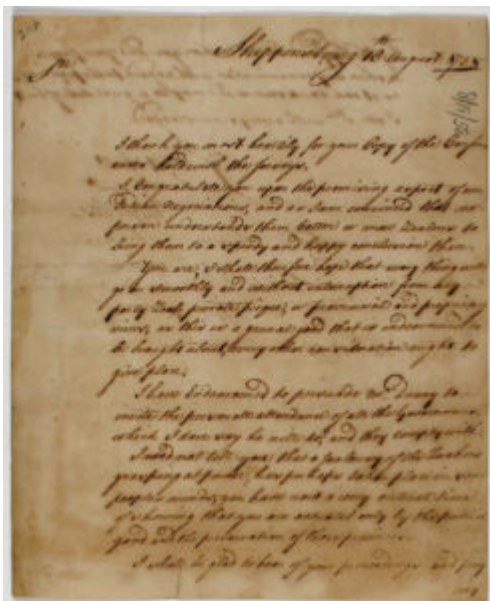 Shippensburg 18th August 1758
8/18/58
Sir
I thank you most heartily for your Copy of the Confer
ences held with the Indians.
I Congratulate you upon the promising aspect of our
Indian negotiations, and as I am convinced that no
person understands them better or more Zealous to
bring them to a speedy and happy conclusion than
You are; I shall therefore hope that every thing will
go on smoothly and without interruption from any
party Zeal, private pique, or provincial and
views, as this is a general good that is endeavoured to
be brought about, every other consideration ought to
give place.
I have Endeavoured to persuade Mr Denny to
invite the personal attendance of all the Governors,
which I dare say he will do, and they comply with.
I need not tell you that a Jealousy of the Quakers
grasping at power, has perhaps taken place in some
peoples minds, you have now a very critical time
of showing that you are actuated only by the publick
good and the preservation of these provinces.
I shall be glad to hear of your proceedings and pray